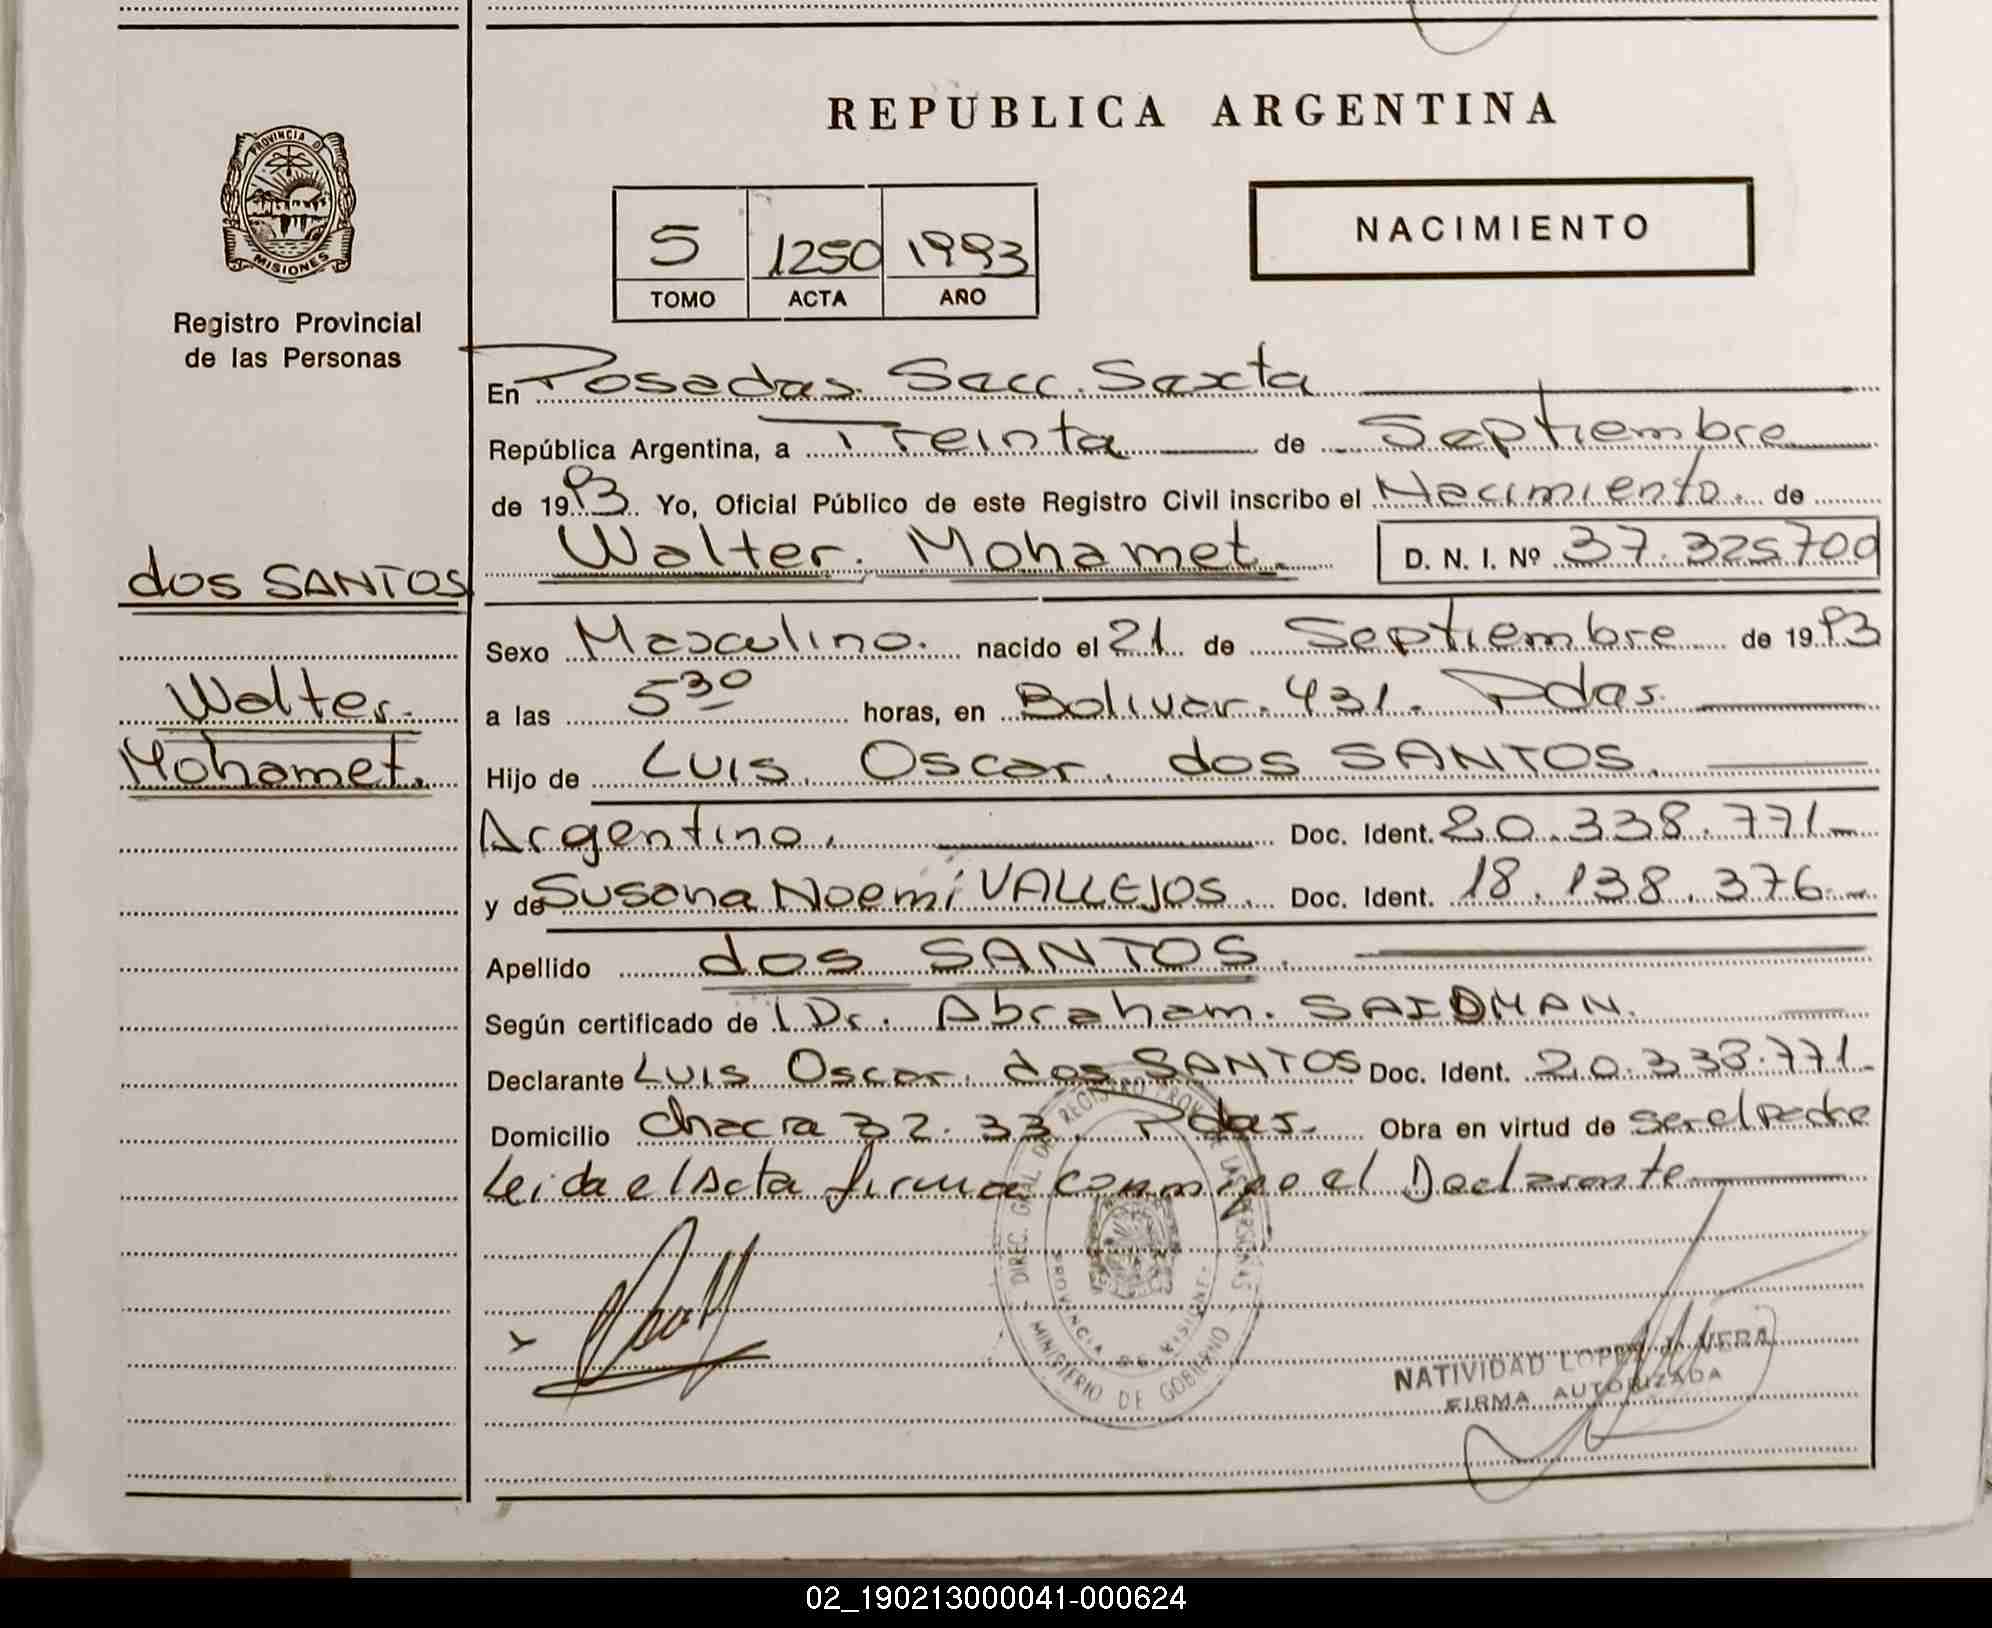 REPUBLICA ARGENTINA
PROVINCIA DE
MISIONES
Registro Provincial
de las Personas
5 1250 1993
TOMO ACTA AÑO
NACIMIENTO
En Posadas. Secc. Sexta
República Argentina, a Treinta de Septiembre
de 1993. Yo, Oficial Público de este Registro Civil inscribo el Nacimiento. de
Walter. Mohamet. D. N. I. Nº 37.325700
dos SANTOS
Walter.
Mohamet.
Sexo Masculino. nacido el 21 de Septiembre de 1993
a las 5 30 horas, en Bolivar. 431. Pdas.
Hijo de Luis. Oscar. dos SANTOS.
Argentino. Doc. Ident. 20.338.771
y de Susana Noemí VALLEJOS. Doc. Ident. 18.138.376.
Apellido dos SANTOS.
Según certificado de l Dr. Abraham. SAIDMAN.
Declarante Luis Oscar. dos SANTOS Doc. Ident. 20.338.771
Domicilio Chacra 32.33. Pdas. Obra en virtud de ser el padre
Leida el Acta firma conmigo el Declarante
DIREC. GRAL. DE REGISTRO PROV. DE LAS PERSONAS
PROVINCIA DE MISIONES
MINISTERIO DE GOBIERNO
NATIVIDAD LOPEZ d. VERA
FIRMA AUTORIZADA
02_190213000041-000624